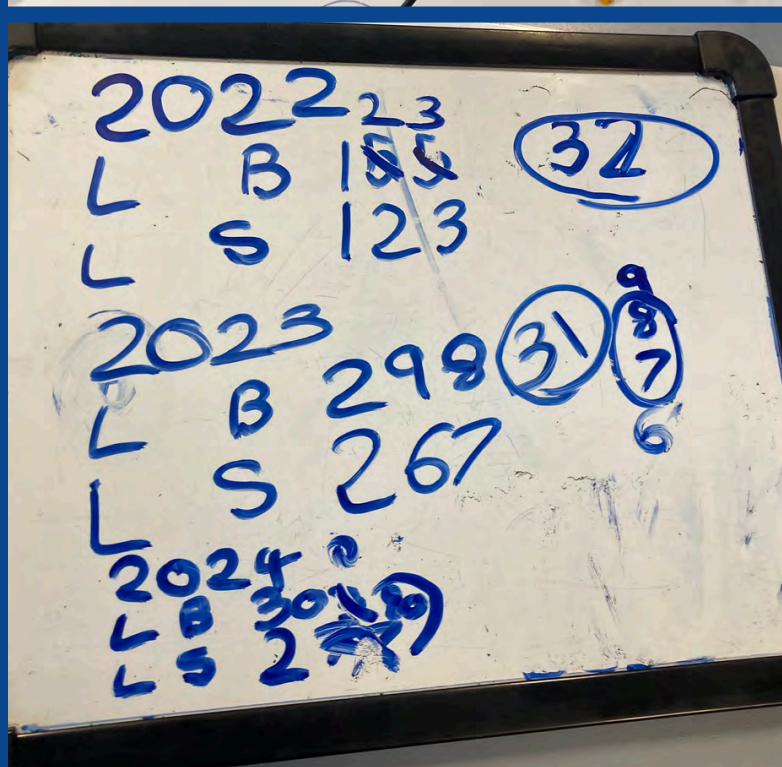 2022 23
L B 155 32
L S 123
2023
L B 298 31 9 8 7 6
L S 267
2024
L B 30
L S 2